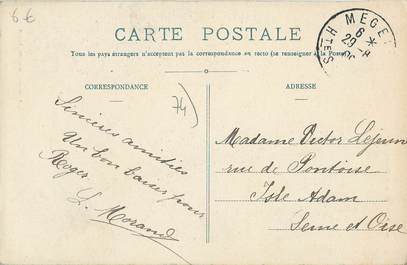 6 €
CARTE POSTALE
Tous les pays étrangers n'acceptent pas la correspondance au recto (se renseigner à la Poste).
CORRESPONDANCE
ADRESSE
MEGÈ
6
29 -8
HTE S
74
Sincères amitiés
Un bon baiser pour
Roger
L. Morand
Madame Victor Lejeune
rue de Pontoise
Isle Adam
Seine et Oise